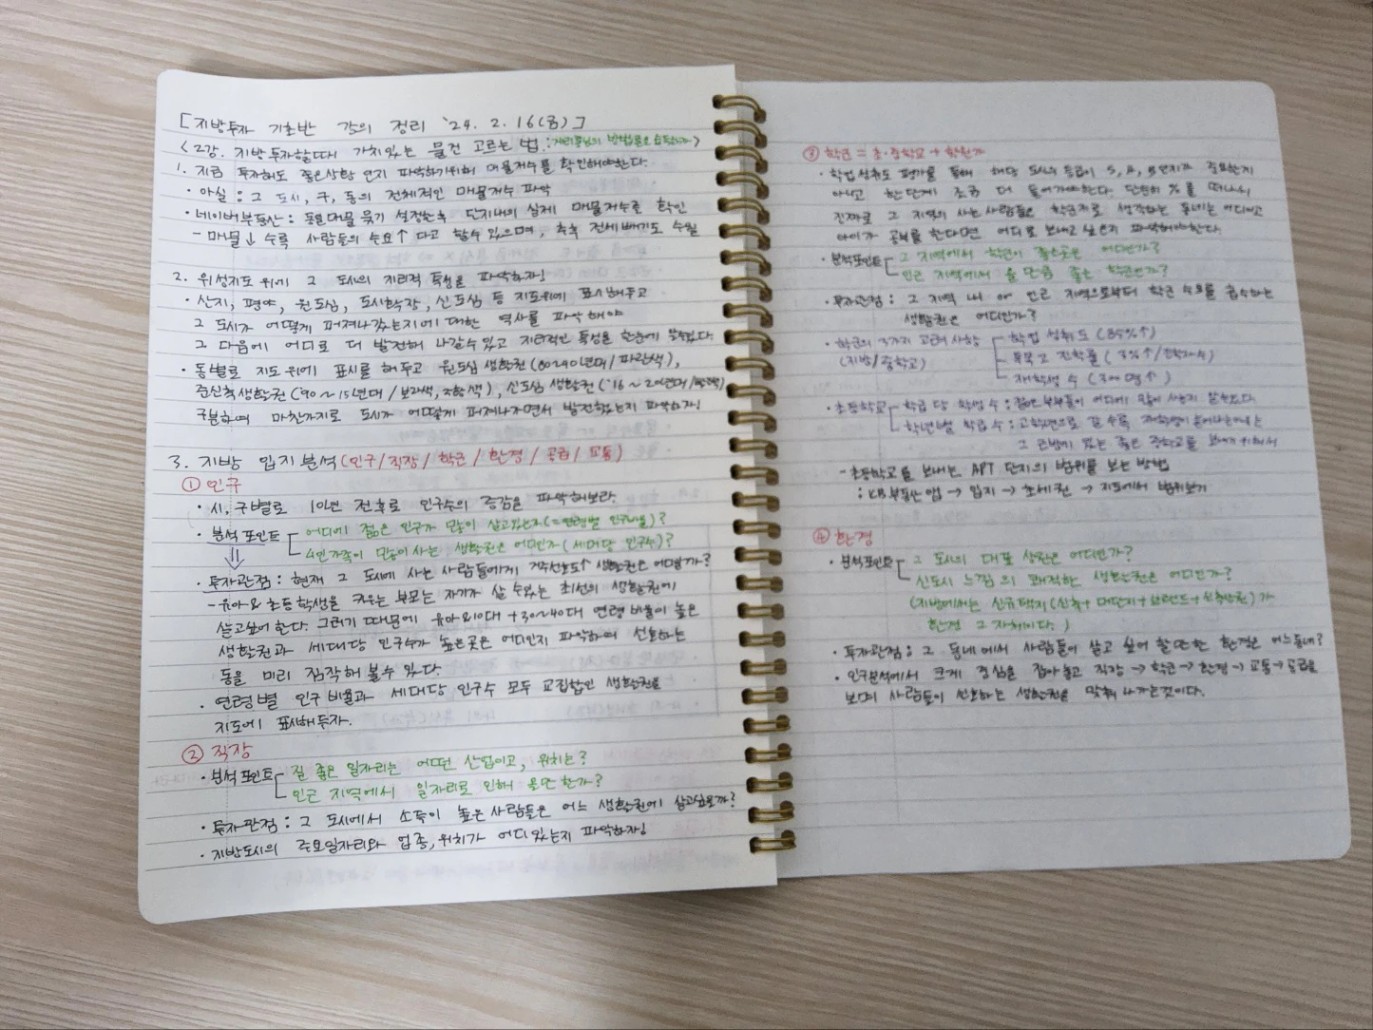 [지방투자 기초반 강의 정리 '24. 2. 16(금)]
<2강. 지방투자할때 가치있는 물건 고르는 법 :
1. 지금 투자해도 좋은상황 인지 파악하기위해 매물개수를 확인해야한다.
· 아실 : 그 도시, 구, 동의 전체적인 매물개수 파악
· 네이버부동산 : 동일매물 묶기 설정한후 단지내의 실제 매물개수를 확인
- 매물↓ 수록 사람들의 수요↑ 다고 할수 있으며, 추후 전세빼기도 수월
2. 위성지도 위에 그 도시의 지리적 특성을 파악하자!
· 산지, 평야, 원도심, 도시확장, 신도심 등 지도위에 표시해두고
그 도시가 어떻게 퍼져나갔는지에 대한 역사를 파악해야
그 다음에 어디로 더 발전해 나갈수있고 지리적인 특성을 한눈에 볼수있다.
· 동별로 지도 위에 표시를 해두고 원도심 생활권(80~90년대/파란색),
준신축생활권('90 ~ 15년대 / 보라색, ), 신도심 생활권('16 ~ 20년대/
구분하여 마찬가지로 도시가 어떻게 퍼져나가면서 발전했는지 파악하자!
3. 지방 입지분석(인구/직장/학군/환경/공급/교통)
① 인구
· 시, 구별로 10년 전후로 인구수의 증감을 파악해보라
· 분석포인트 어디에 젊은 인구가 많이 살고있는지(=연령별 인구비율)?
4인가족이 많이사는 생활권은 어디인지(세대당 인구수)?
⇓
· 투자관점 : 현재 그 도시에 사는 사람들에게 거주선호도↑ 생활권은 어디일까?
- 유아&초등학생을 키우는 부모는 자기가 살 수있는 최선의 생활권에
살고싶어 한다. 그러기 때문에 유아&10대 +30~40대 연령 비율이 높은
생활권과 세대당 인구수가 높은곳은 어디인지 파악하여 선호하는
동을 미리 짐작해 볼수 있다.
· 연령별 인구 비율과 세대당 인구수 모두 교집합인 생활권을
지도에 표시해두자.
② 직장
· 분석포인트 질 좋은 일자리는 어떤 산업이고, 위치는?
인근 지역에서 일자리로 인해 올만한가?
· 투자관점 : 그 도시에서 소득이 높은사람들은 어느 생활권에 살고싶을까?
· 지방도시의 주요일자리와 업종, 위치가 어디있는지 파악하자!
③ 학군 = 초·중학교 + 학원가
· 학업성취도 평가를 통해 해당 도시의 등급이 S, A, B인지도 중요한지
아니고 한단계 조금 더 들어가야한다. 단순히 %를 떠나서
진짜로 그 지역의 사는사람들은 학군지로 생각하는 동네는 어디이고
아이가 공부를 한다면 어디로 보내고 싶은지 파악해야한다.
· 분석포인트 그 지역에서 학군이 좋은곳은 어디인가?
인근 지역에서 올 만큼 좋은 학군인가?
· 투자관점 : 그 지역 내 or 인근 지역으로부터 학군 수요를 흡수하는
생활권은 어디인가?
· 학군의 3가지 고려사항 학업 성취도 (85%↑)
(지방/중학교) 특목고 진학률 (3%↑/
재학생 수 (300명↑)
· 초등학교 학급당 학생수 : 젊은부부들이 어디에 많이 사는지 알수있다.
학년별 학급수 : 고학년으로 갈 수록 재학생이
그 근방에 있는 좋은 중학교를 보내기 위해서
- 초등학교를 보내는 APT 단지의 범위를 보는 방법
: KB부동산 앱 → 입지 → 초세권 → 지도에서 범위보기
④ 환경
· 분석포인트 그 도시의 대표 상권은 어디인가?
신도시 느낌의 쾌적하는 생활권은 어디인가?
(지방에서는 신규택지(신축+대단지+브랜드+ )가
환경 그 자체이다.)
· 투자관점 : 그 동네에서 사람들이 살고 싶어 할만한 환경은 어느동네?
· 인구분석에서 크게 중심을 잡아놓고 직장→학군→환경→교통→공급을
보며 사람들이 선호하는 생활권을 맞춰 나가는것이다.